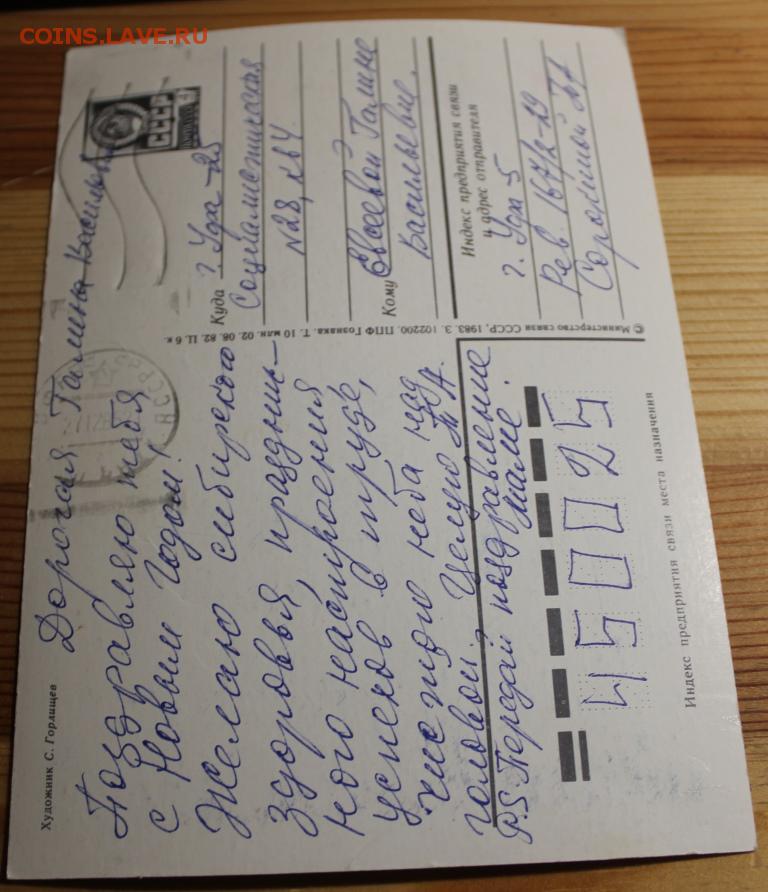 COINS.LAVE.RU
Художник С. Горлищев
Дорогая Галина Васильевна
Поздравляю тебя
с Новым Годом!
Желаю сибирского
здоровья, празднич-
ного настроения
успехов в труде,
чистого неба над
головой. Целую
P.S. Передай поздравление
маме.
СССР
Куда г. Уфа-25
Социалистическая
№28, кв 4
Кому Евсеевой Галине
Васильевне.
Индекс предприятия связи
и адрес отправителя
г. Уфа-5
Рев. 167/2-29
Сорокиной
© Министерство связи СССР, 1983. З. 102200. ППФ Гознака. Т. 10 млн. 02. 08. 82. Ц. 6 к.
450025
Индекс предприятия связи места назначения